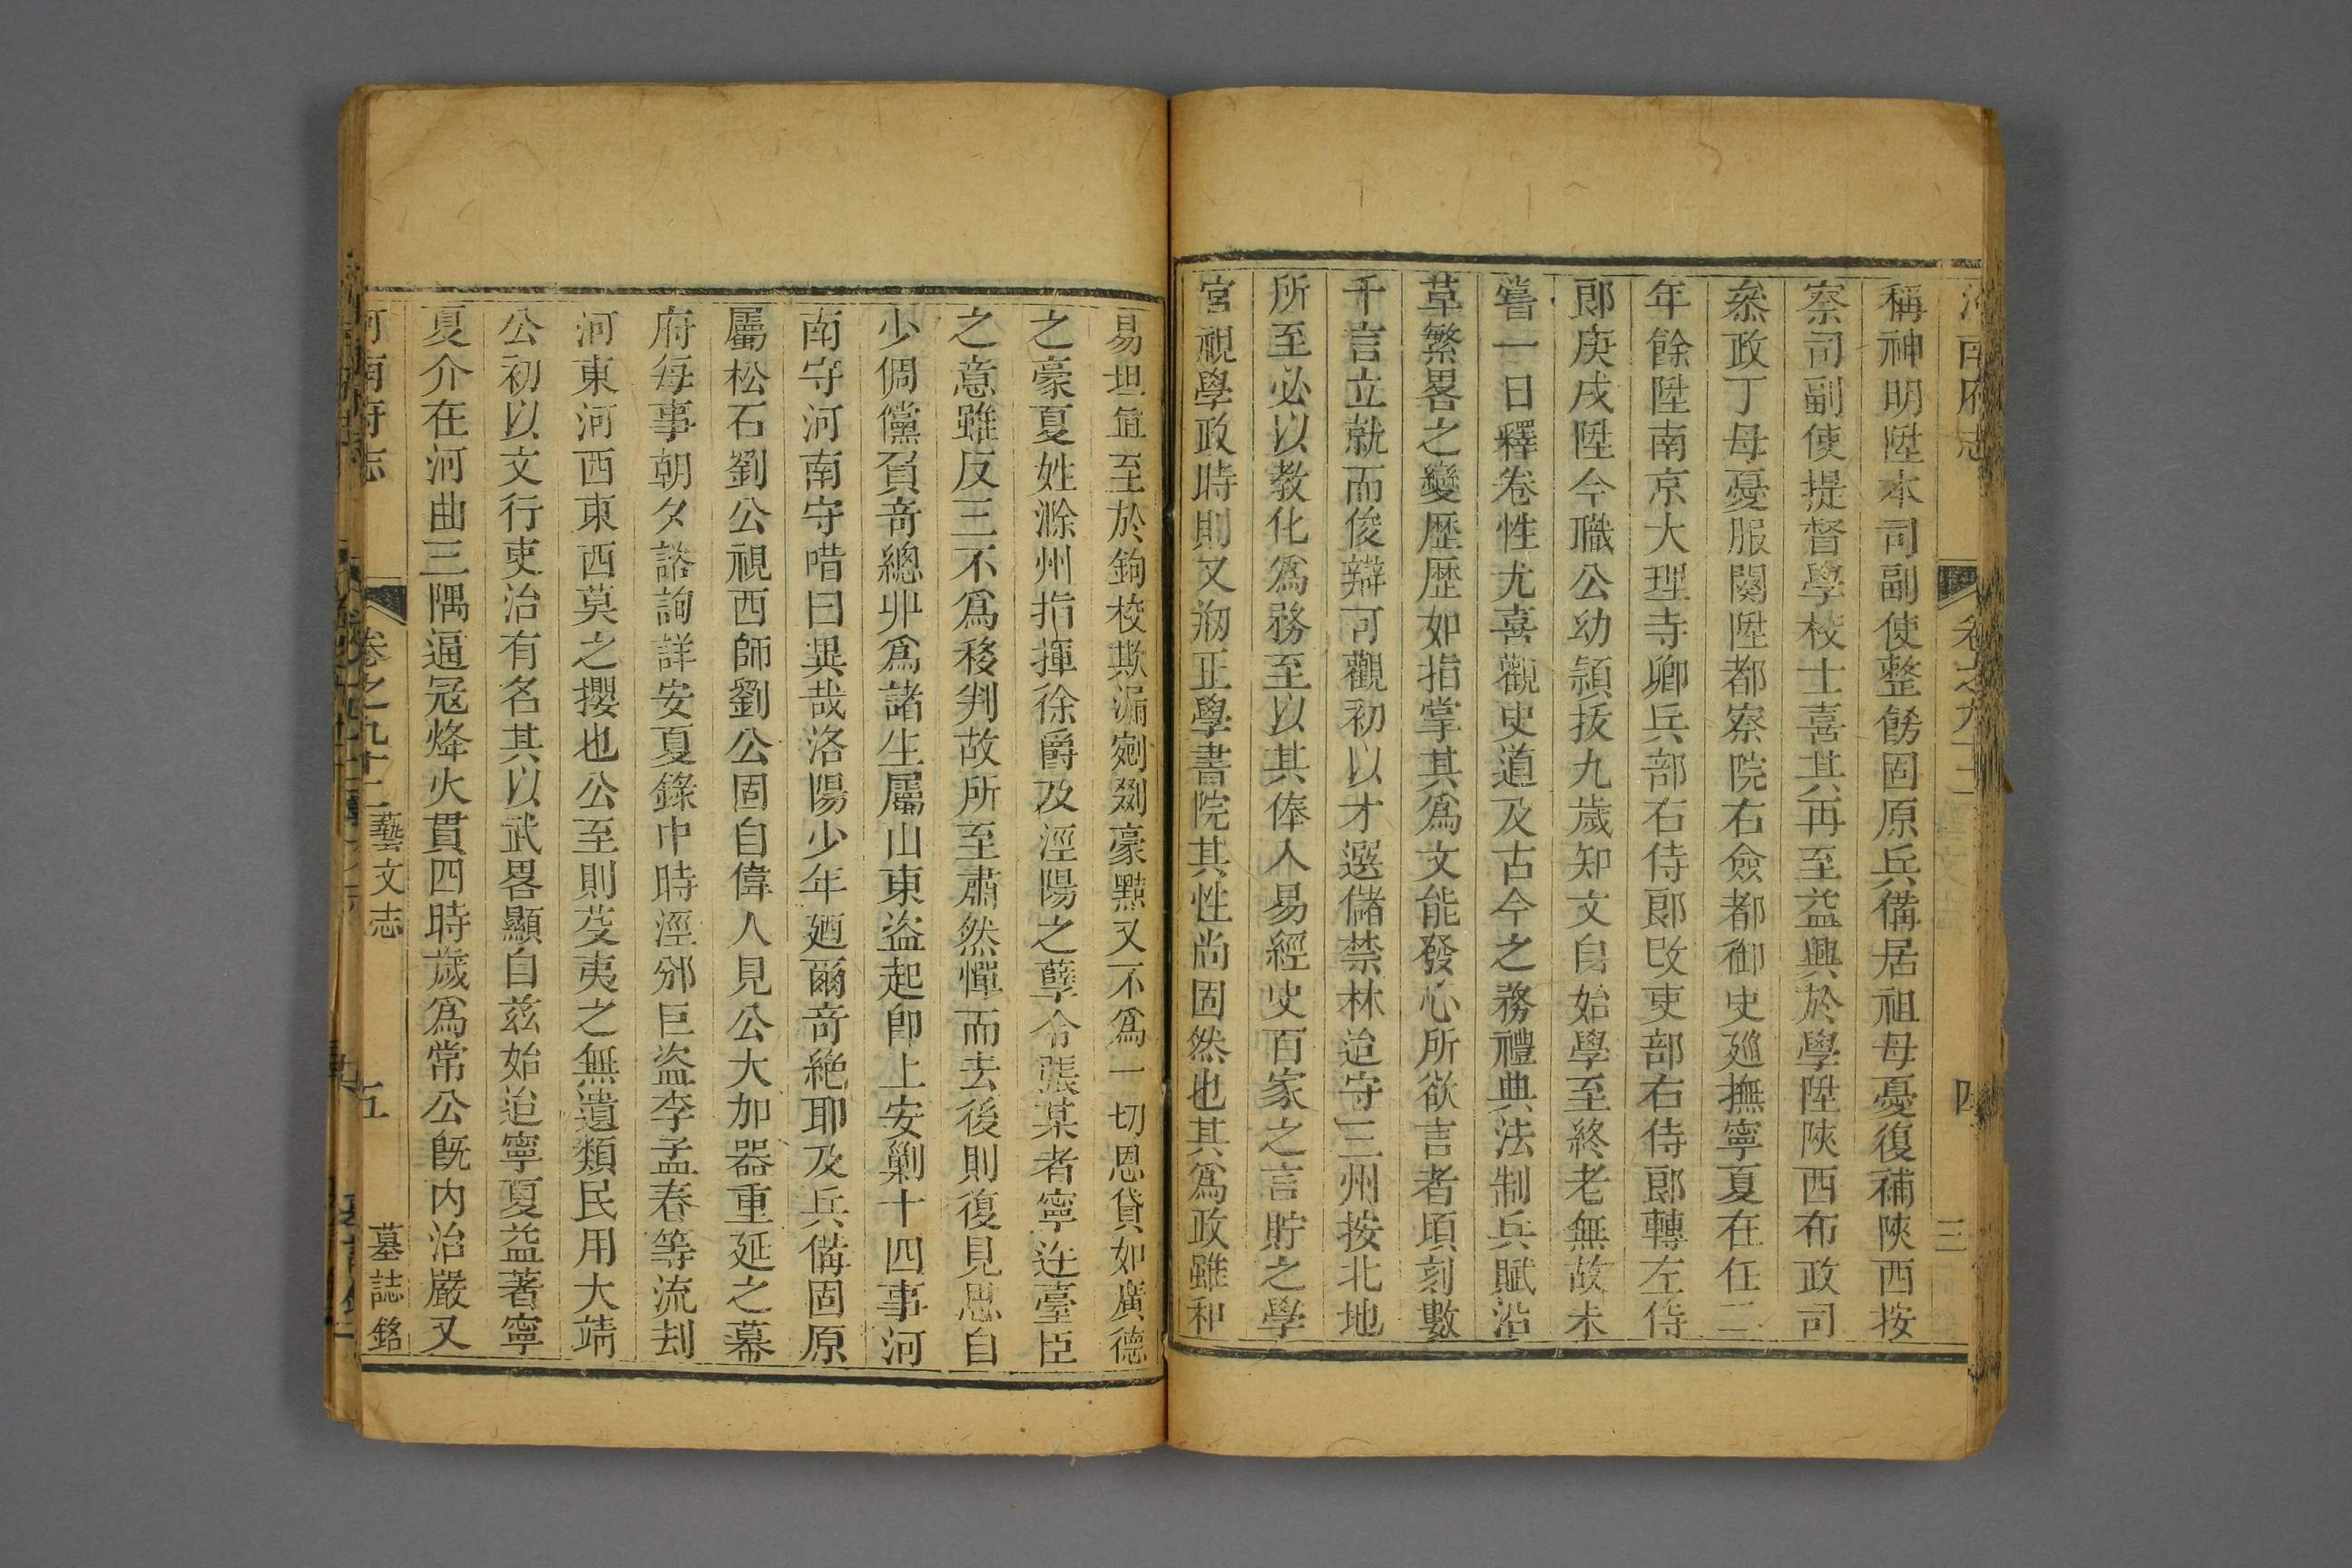 河南府志 卷之九十二 四
稱神明陞本司副使整飭固原兵備居祖母憂復補陝西按
察司副使提督學校士喜其再至益興於學陞陝西布政司
叅政丁母憂服闋陞都察院右僉都御史廵撫寧夏在任二
年餘陞南京大理寺卿兵部右侍郎改吏部右侍郎轉左侍
郎庚戌陞今職公幼頴拔九歲知文自始學至終老無故未
嘗一日釋卷性尤喜觀史道及古今之務禮典法制兵賦沿
革繁畧之變歷歷如指掌其爲文能發心所欲言者頃刻數
千言立就而俊辯可觀初以才選儲禁林迨守三州按北地
所至必以教化爲務至以其俸入易經史百家之言貯之學
宮視學政時則又剏正學書院其性尚固然也其爲政雖和
易坦直至於鉤校欺漏剜剗豪黠又不爲一切恩貸如廣德
之豪夏姓滁州指揮徐爵及涇陽之孽令張某者寧迕臺臣
之意雖反三不爲移判故所至肅然憚而去後則復見思自
少倜儻負奇總丱爲諸生屬山東盗起卽上安剿十四事河
南守河南守唶曰異哉洛陽少年廼爾奇絶耶及兵備固原
屬松石劉公視西師劉公固自偉人見公大加器重延之幕
府每事朝夕諮詢詳安夏錄中時涇邠巨盗李孟春等流刦
河東河西東西莫之攖也公至則芟夷之無遺類民用大靖
公初以文行吏治有名其以武畧顯自兹始迨寧夏益著寧
夏介在河曲三隅逼冦烽火貫四時歲爲常公既内治嚴又
河南府志 卷之九十二 藝文志 五 墓誌銘